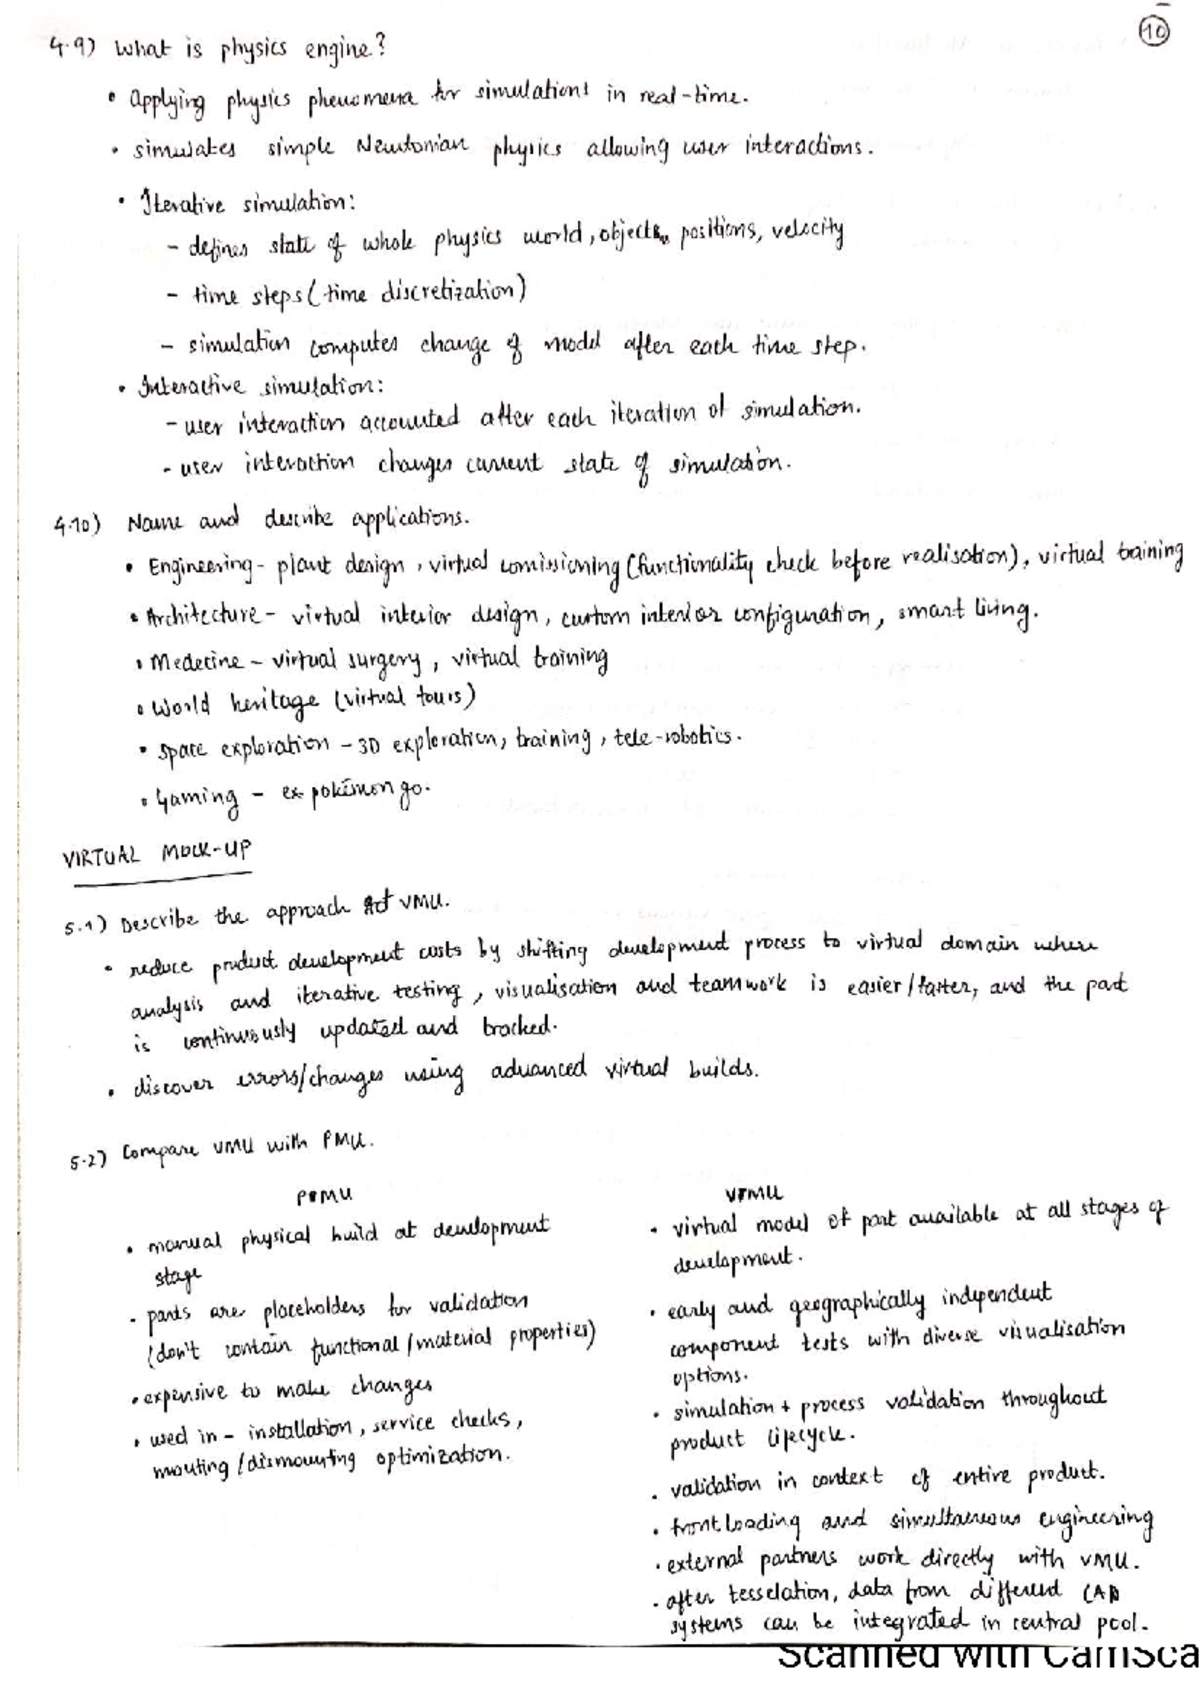 10
4.9) What is physics engine?
• Applying physics phenomena for simulations in real-time.
• simulates simple Newtonian physics allowing user interactions.
• Iterative simulation:
- defines state of whole physics world, objects, positions, velocity
- time steps (time discretization)
- simulation computes change of model after each time step.
• Interactive simulation:
- user interaction accounted after each iteration of simulation.
- user interaction changes current state of simulation.
4.10) Name and describe applications.
• Engineering - plant design, virtual comissioning (functionality check before realisation), virtual training
• Architecture - virtual interior design, custom interior configuration, smart living.
• Medecine - virtual surgery, virtual training
• World heritage (virtual tours)
• space exploration - 3D exploration, training, tele-robotics.
• Gaming - ex pokémon go.
VIRTUAL MOCK-UP
5.1) Describe the approach of VMU.
• reduce product development costs by shifting development process to virtual domain where
analysis and iterative testing, visualisation and teamwork is easier/faster, and the part
is continuously updated and tracked.
• discover errors/changes using advanced virtual builds.
5.2) Compare VMU with PMU.
PMU
• manual physical build at development
stage
• parts are placeholders for validation
(don't contain functional/material properties)
• expensive to make changes
• used in - installation, service checks,
mouting/dismounting optimization.
VMU
• virtual model of part available at all stages of
development.
• early and geographically independent
component tests with diverse visualisation
options.
• simulation + process validation throughout
product lifecycle.
• validation in context of entire product.
• frontloading and simultaneous engineering
• external partners work directly with VMU.
• after tesselation, data from different CAD
systems can be integrated in central pool.
Scanned with CamSca